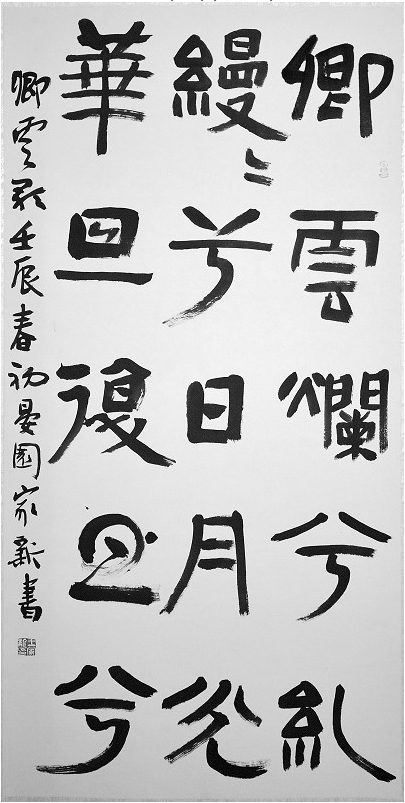 卿雲爛兮糺
縵〻兮日月光
華旦復旦兮
卿雲歌壬辰春初晏園家新書